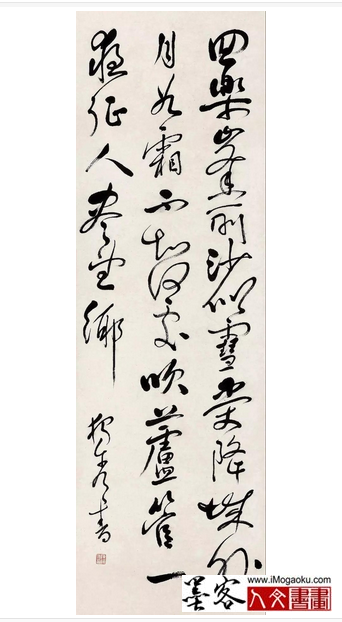 回樂峯前沙似雪受降城外
月如霜不知何處吹蘆管一
夜征人盡望鄉
書
墨客
www.iMogaoku.com
人文書畫